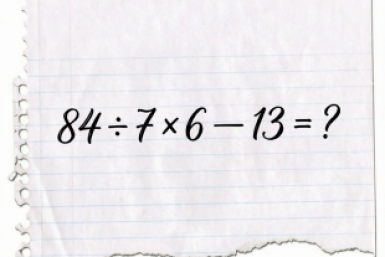 84÷7×6—13=?